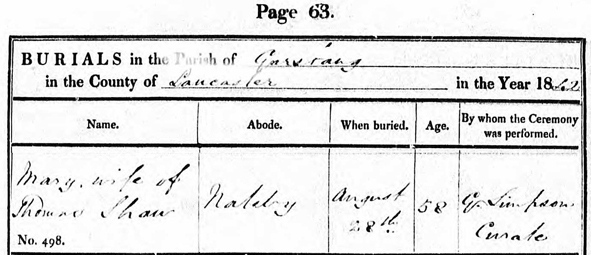 Page 63.
BURIALS in the Parish of Garstang
in the County of Lancaster in the Year 1852
Name. Abode. When buried. Age. By whom the Ceremony
was performed.
Mary, wife of
Thomas Shaw
No. 498.
Nateby
August
28th
58
G. Simpson
Curate